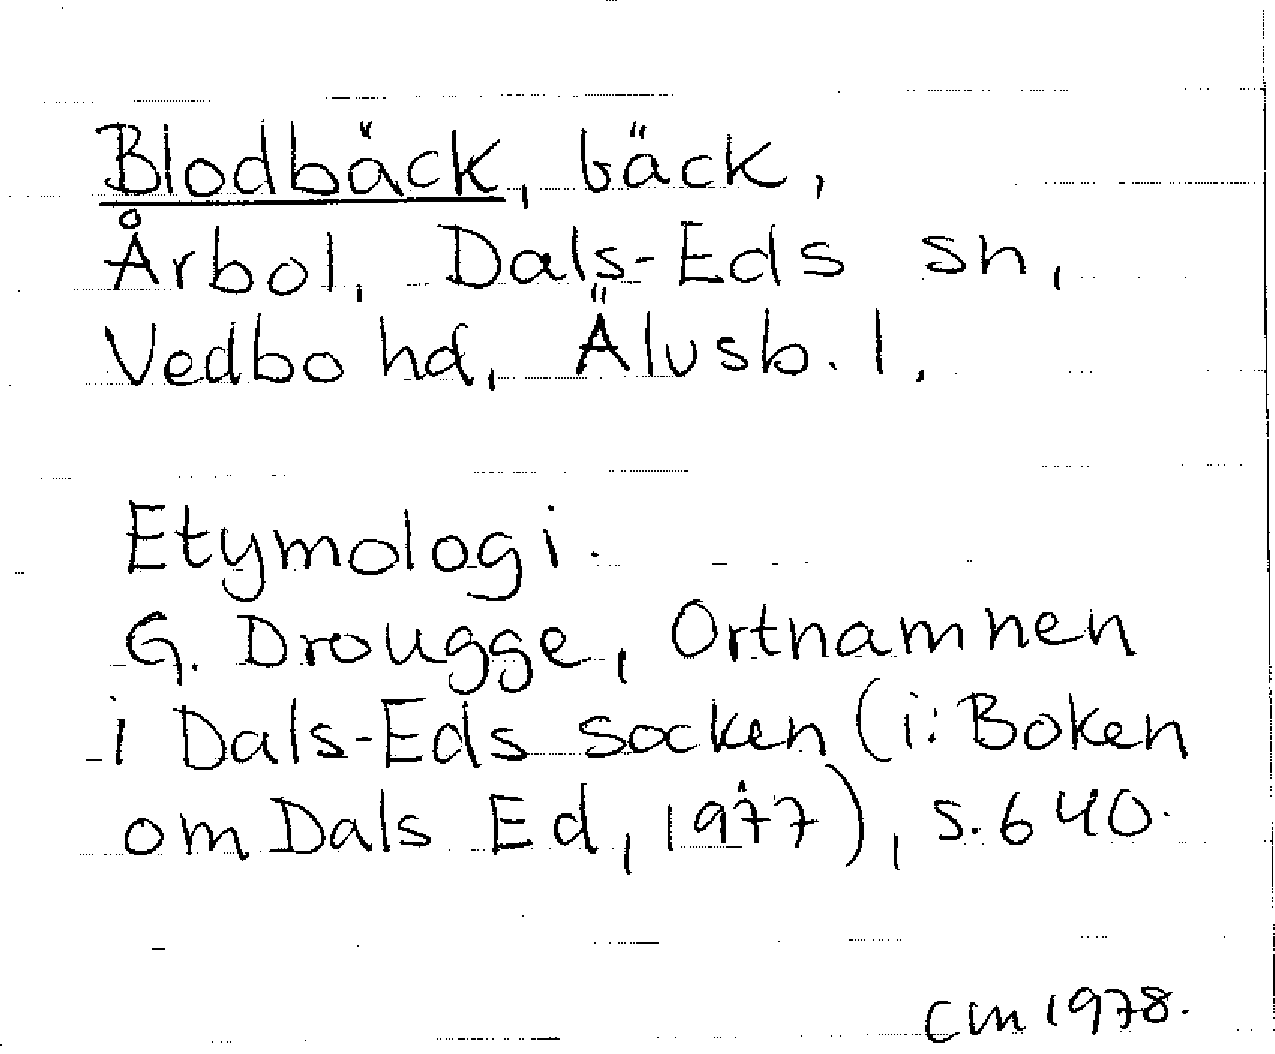 Blodbäck, bäck,
Årbol, Dals-Eds sn,
Vedbo hd, Älvsb. l.
Etymologi.
G. Drougge, Ortnamnen
i Dals-Eds socken (i: Boken
om Dals Ed, 1977), s. 640.
CM 1978.